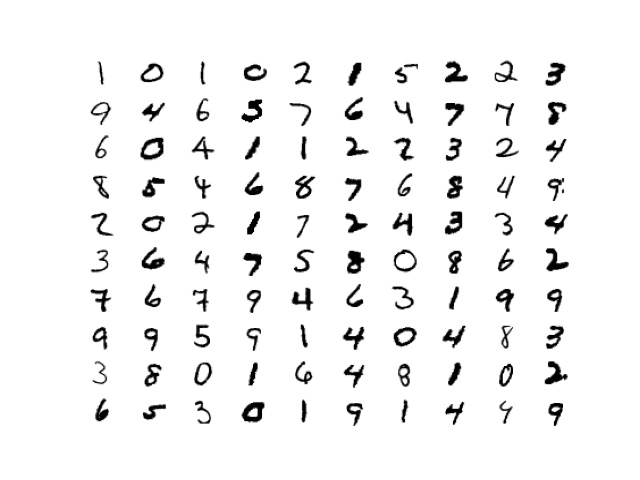 1 0 1 0 2 1 5 2 2 3
9 4 6 5 7 6 4 7 7 8
6 0 4 1 1 2 2 3 2 4
8 5 4 6 8 7 6 8 4 9
2 0 2 1 7 2 4 3 3 4
3 6 4 7 5 8 0 8 6 2
7 6 7 9 4 6 3 1 9 9
9 9 5 9 1 4 0 4 8 3
3 8 0 1 6 4 8 1 0 2
6 5 3 0 1 9 1 4 4 9